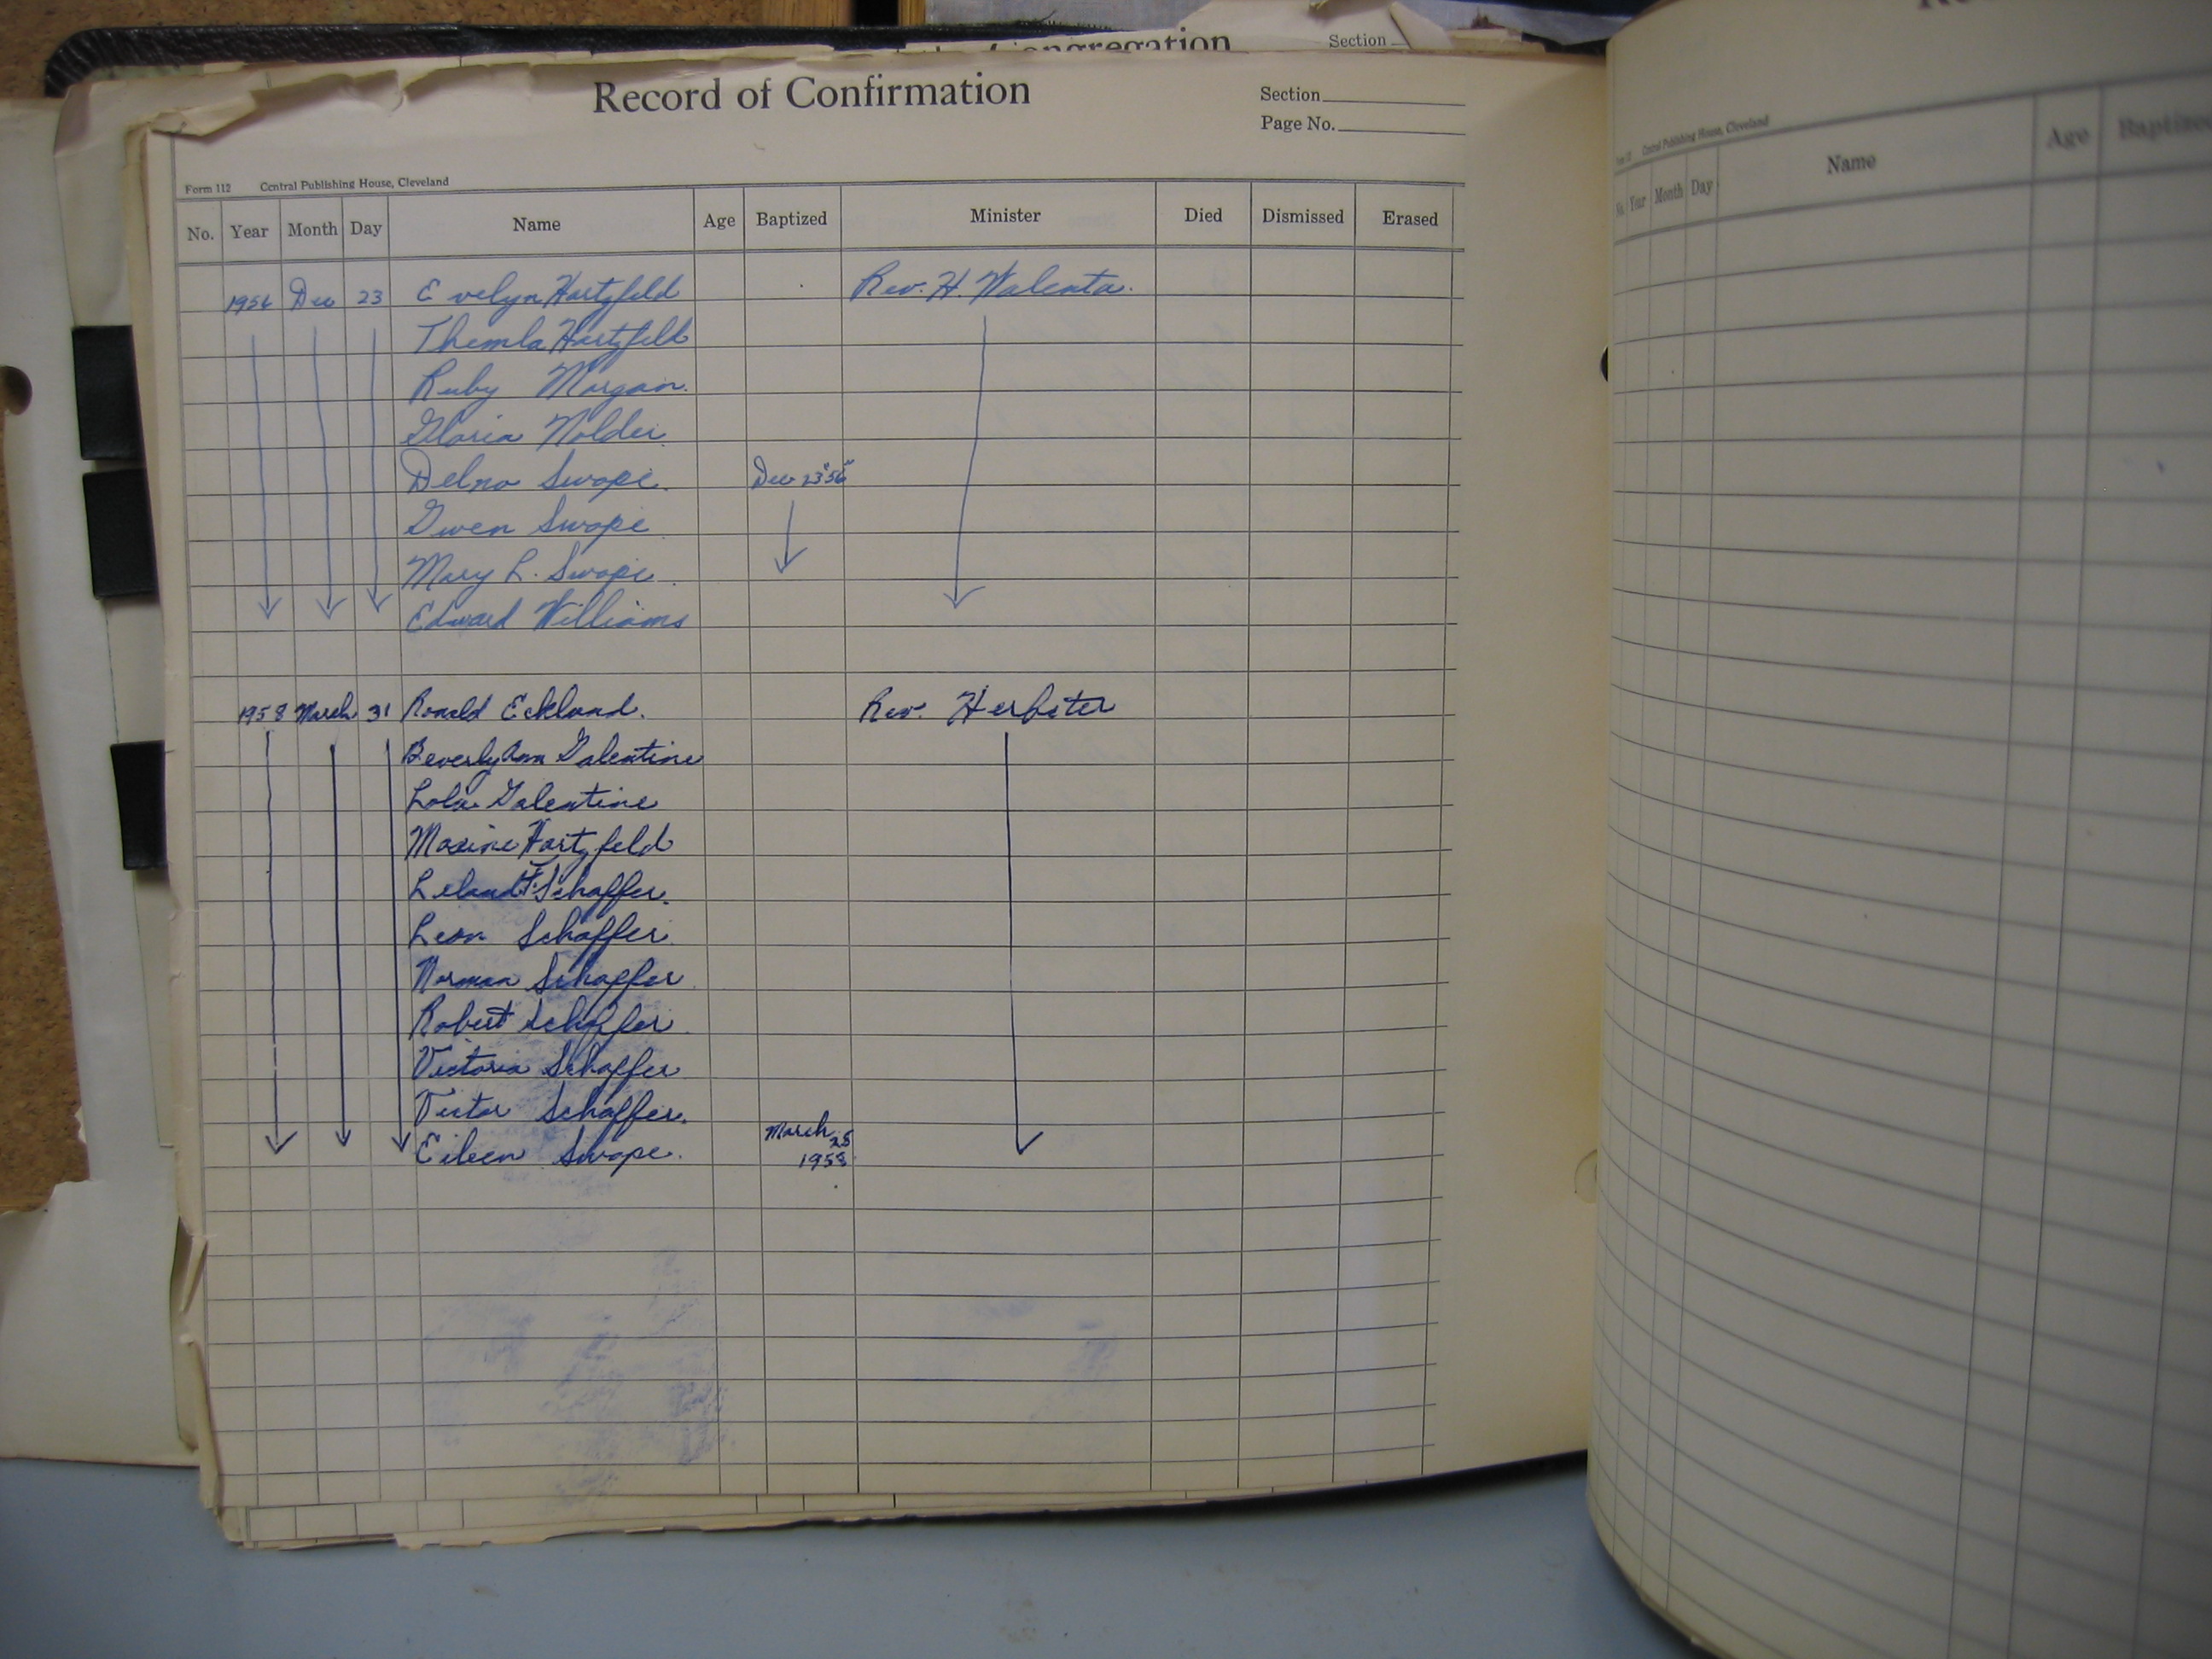 Congregation
Section
Record of Confirmation
Section
Page No.
Form 112 Central Publishing House, Cleveland
No. Year Month Day Name Age Baptized Minister Died Dismissed Erased
1956 Dec 23 Evelyn Hartzfeld Rev. H. Walenta.
Themla Hartzfeld
Ruby Morgan.
Gloria Nolder
Delno Swope. Dec 23 "56"
Gwen Swope
Mary L. Swope.
Edward Williams
1958 March 31 Ronald Ecklund. Rev. Herbster
Beverly Ann Galentine
Lola Galentine
Maxine Hartzfeld
Leland F. Schaffer.
Leon Schaffer
Norman Schaffer
Robert Schaffer
Victoria Schaffer
Victor Schaffer.
Eileen Swope. March 25 1958
Central Publishing House, Cleveland
No. Year Month Day Name Age Baptized